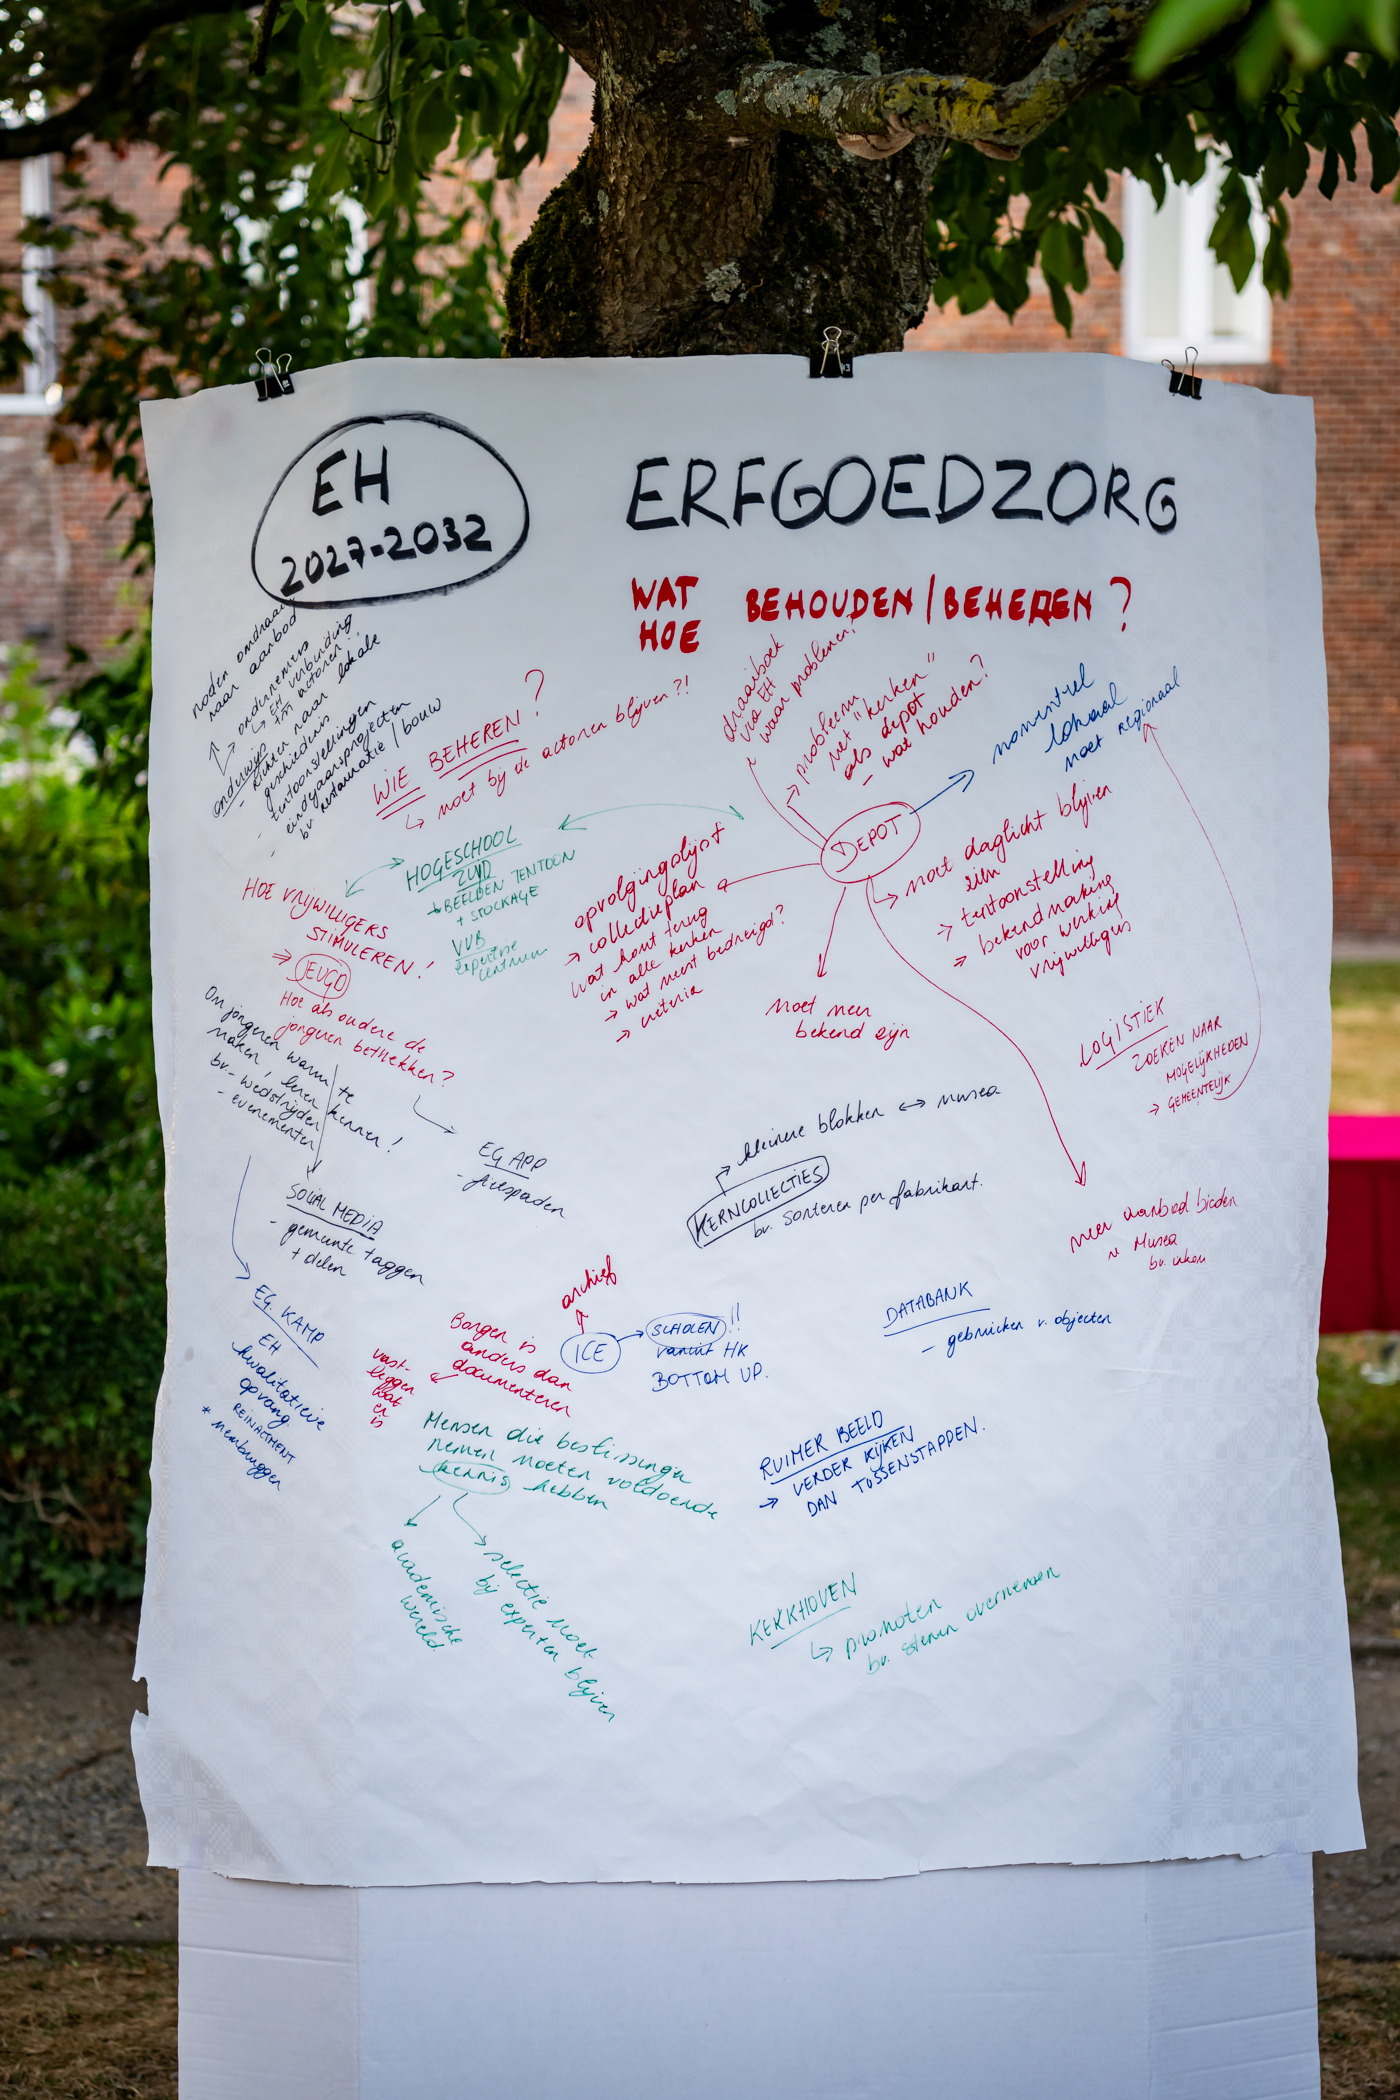 EH
2027-2032
ERFGOEDZORG
WAT
HOE
BEHOUDEN / BEHEREN ?
noden omdraaien
naar aanbod
→ ondernemers
↳ EH verbinding
tss actoren
onderwijs
- richten naar lokale
geschiedenis
- tentoonstellingen
- eindejaarsprojecten
bv. restauratie / bouw
WIE BEHEREN ?
↳ moet bij de actoren blijven ?!
draaiboek
via EH
waar problemen?
→ probleem
met "kerken"
als depot
- wat houden?
momenteel
lokaal
moet regionaal
DEPOT
HOGESCHOOL
ZUID
→ BEELDEN TENTOON
+ STOCKAGE
VVB
expertise
centrum
opvolgingslijst
→ collectieplan
wat komt terug
in alle kerken
→ wat meest bedreigd?
→ criteria
↳ moet daglicht blijven
zien
→ tentoonstelling
→ bekendmaking
voor werking
vrijwilligers
HOE VRIJWILLIGERS
STIMULEREN !
⇒ JEUGD
Hoe als oudere de
jongeren betrekken?
Moet meer
bekend zijn
LOGISTIEK
ZOEKEN NAAR
MOGELIJKHEDEN
→ GEMEENTELIJK
Om jongeren warm te
maken, leren kennen!
bv. - wedstrijden
- evenementen
EG APP
- fietspaden
SOCIAL MEDIA
- gemeente taggen
+ delen
kleinere blokken ↔ musea
KERNCOLLECTIES
bv. sorteren per fabrikant.
meer aanbod bieden
Musea
EG. KAMP
EH
kwalitatieve
opvang
REINACTMENT
* membruggen
archief
ICE
SCHOLEN !!
vanuit HK
BOTTOM UP.
Borgen is
anders dan
documenteren
vast-
leggen
wat
er
is
DATABANK
- gebruiken v. objecten
Mensen die beslissingen
nemen moeten voldoende
kennis hebben
academische
wereld
selectie moet
bij experten blijven
RUIMER BEELD
→ VERDER KIJKEN
DAN TUSSENSTAPPEN.
KERKHOVEN
↳ promoten
bv. stenen overnemen